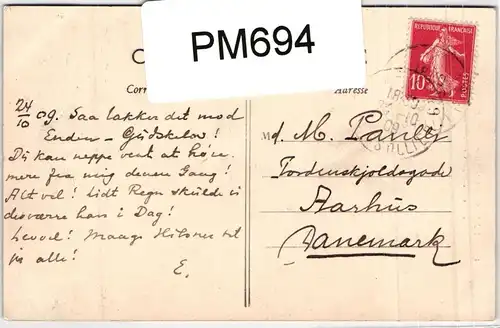 PM694
C
Corr
Adresse
REPUBLIQUE FRANÇAISE
10
POSTES
24/10 09. Saa lakker det mod
Enden - Gudskelov!
Du kan neppe vent at høre
mere fra mig denne Gang!
Alt vel! Lidt Regn skulde vi
desværre han i Dag!
Levvel! Mange Hilsner til
jer alle!
E.
M. Paulli
Tordenskjoldsgade
Aarhus
Danemark